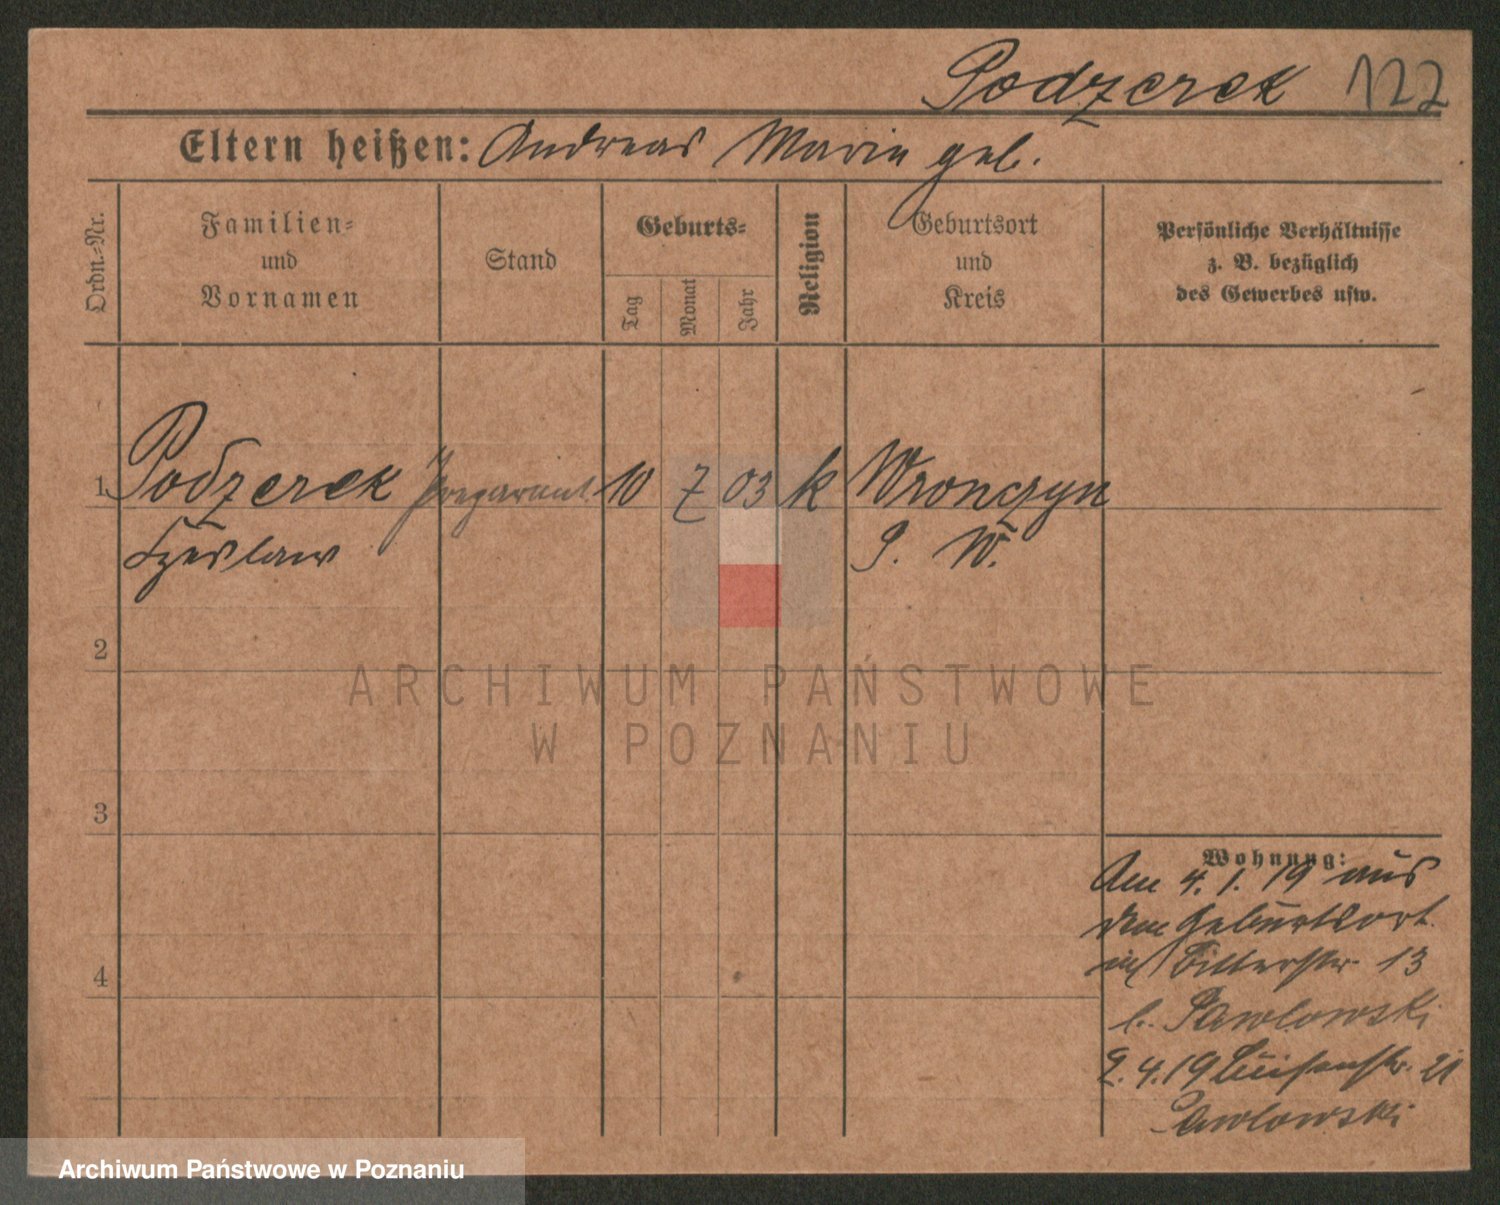 Podzerek 122
Eltern heißen: Andreas Marie geb.
Ordn.-Nr.
Familien- und Vornamen
Stand
Geburts-
Tag
Monat
Jahr
Religion
Geburtsort und Kreis
Persönliche Verhältnisse
z. B. bezüglich
des Gewerbes usw.
1 Podzerek Preparand. 10 7 03 k Wronczyn
Czeslaw P. W.
2
ARCHIWUM PAŃSTWOWE
W POZNANIU
3
4
Wohnung:
Am 4. 1. 19 aus
dem Geburtsort
13
b. Pawlowski
2. 4. 19 Luisenstr. 21
Pawlowski
Archiwum Państwowe w Poznaniu